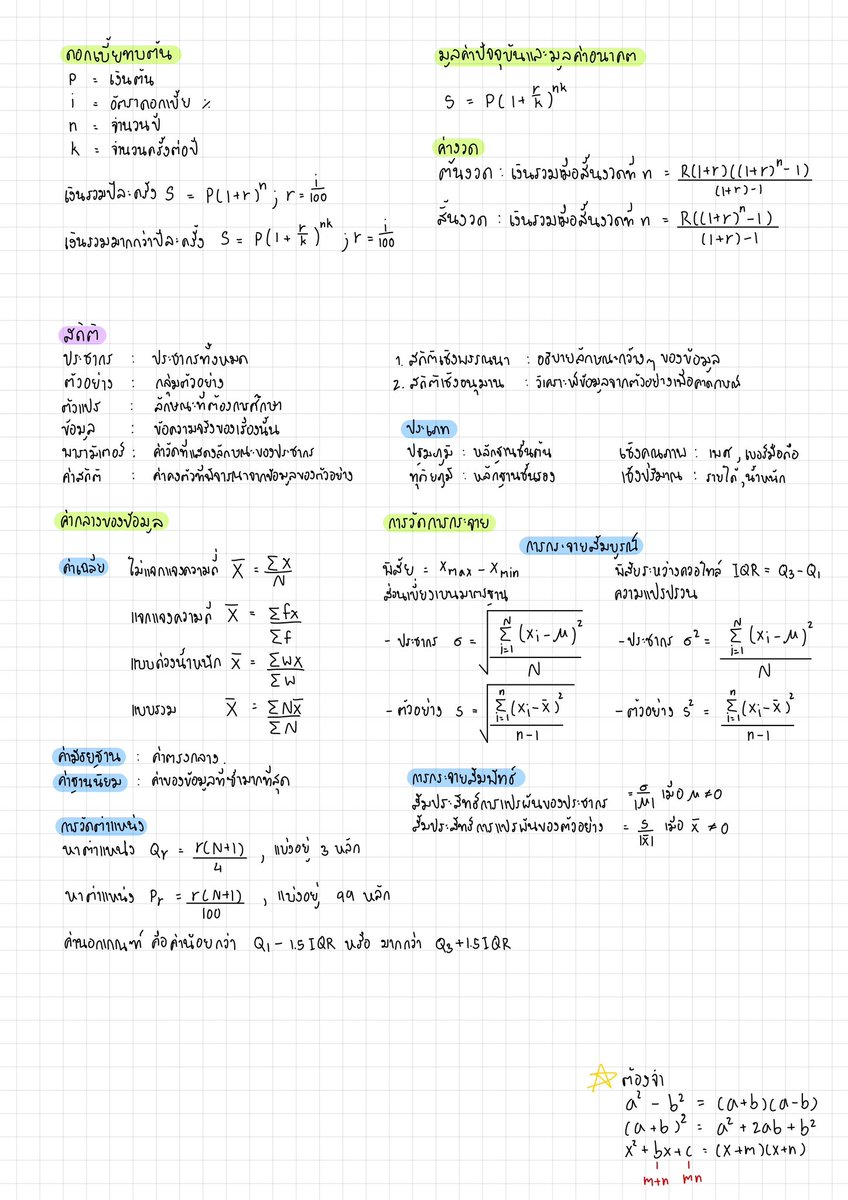 ดอกเบี้ยทบต้น
P = เงินต้น
i = อัตราดอกเบี้ย %
n = จำนวนปี
k = จำนวนครั้งต่อปี
เงินรวมปีละครั้ง S = P(1+r)^n ; r = i/100
เงินรวมมากกว่าปีละครั้ง S = P(1 + r/k)^nk ; r = i/100
มูลค่าปัจจุบันและมูลค่าอนาคต
S = P(1 + r/k)^nk
ค่างวด
ต้นงวด : เงินรวมเมื่อสิ้นงวดที่ n = R(1+r)((1+r)^n - 1) / (1+r)-1
สิ้นงวด : เงินรวมเมื่อสิ้นงวดที่ n = R((1+r)^n - 1) / (1+r)-1
สถิติ
ประชากร : ประชากรทั้งหมด
ตัวอย่าง : กลุ่มตัวอย่าง
ตัวแปร : ลักษณะที่ต้องการศึกษา
ข้อมูล : ข้อความจริงของเรื่องนั้น
พารามิเตอร์ : ค่าวัดที่แสดงลักษณะของประชากร
ค่าสถิติ : ค่าคงตัวที่พิจารณาจากข้อมูลของตัวอย่าง
1. สถิติเชิงพรรณนา : อธิบายลักษณะกว้างๆ ของข้อมูล
2. สถิติเชิงอนุมาน : วิเคราะห์ข้อมูลจากตัวอย่างเพื่อคาดการณ์
ประเภท
ปฐมภูมิ : หลักฐานชั้นต้น
ทุติยภูมิ : หลักฐานชั้นรอง
เชิงคุณภาพ : เพศ, เบอร์มือถือ
เชิงปริมาณ : รายได้, น้ำหนัก
ค่ากลางของข้อมูล
ค่าเฉลี่ย ไม่แจกแจงความถี่ X̄ = ΣX/N
แจกแจงความถี่ X̄ = Σfx/Σf
แบบถ่วงน้ำหนัก X̄ = Σwx/Σw
แบบรวม X̄ = ΣNX̄/ΣN
ค่ามัธยฐาน : ค่าตรงกลาง.
ค่าฐานนิยม : ค่าของข้อมูลที่ซ้ำมากที่สุด
การวัดการกระจาย
การกระจายสัมบูรณ์
พิสัย = Xmax - Xmin
ส่วนเบี่ยงเบนมาตรฐาน
- ประชากร σ = √(Σ_{i=1}^{N} (xi - μ)² / N)
- ตัวอย่าง s = √(Σ_{i=1}^{n} (xi - x̄)² / n-1)
พิสัยระหว่างควอไทล์ IQR = Q3 - Q1
ความแปรปรวน
- ประชากร σ² = Σ_{i=1}^{N} (xi - μ)² / N
- ตัวอย่าง s² = Σ_{i=1}^{n} (xi - x̄)² / n-1
การกระจายสัมพัทธ์
สัมประสิทธ์การแปรผันของประชากร = σ/|μ| เมื่อ μ ≠ 0
สัมประสิทธ์การแปรผันของตัวอย่าง = s/|x̄| เมื่อ x̄ ≠ 0
การวัดตำแหน่ง
หาตำแหน่ง Qr = r(N+1)/4 , แบ่งอยู่ 3 หลัก
หาตำแหน่ง Pr = r(N+1)/100 , แบ่งอยู่ 99 หลัก
ค่านอกเกณฑ์ คือค่าน้อยกว่า Q1 - 1.5 IQR หรือ มากกว่า Q3 + 1.5 IQR
ต้องจำ
a² - b² = (a+b)(a-b)
(a+b)² = a² + 2ab + b²
x² + bx + c = (x+m)(x+n)
m+n mn